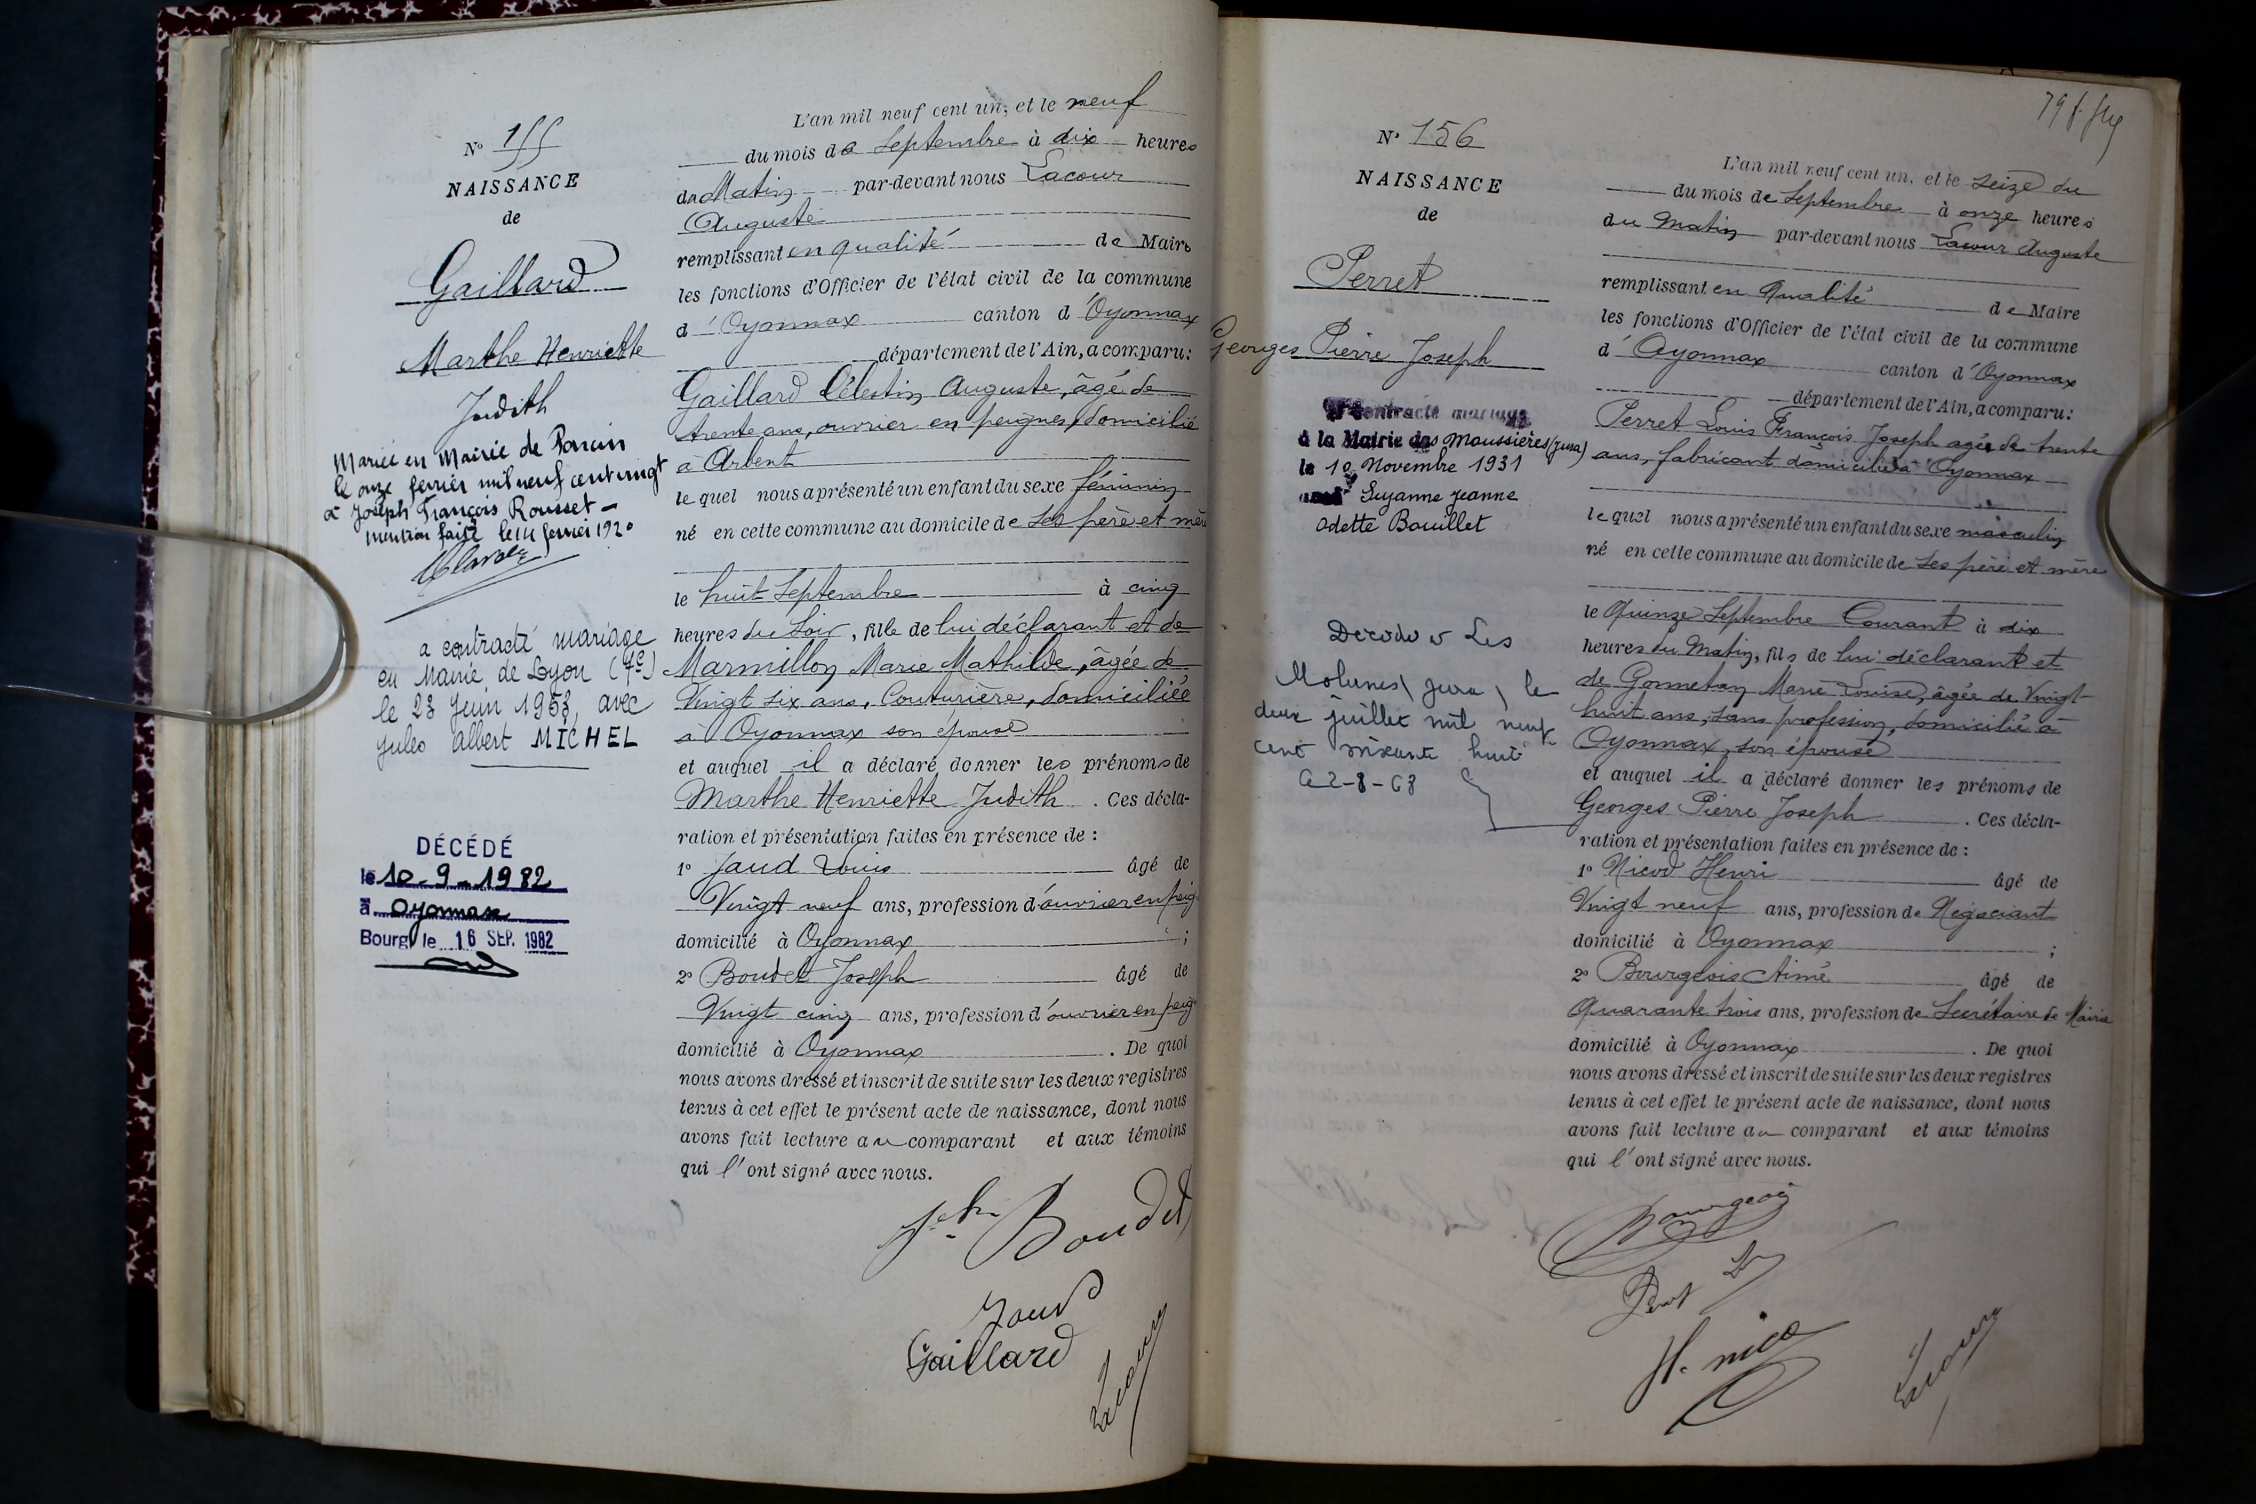 N° 155
NAISSANCE
de
Gaillard
Marthe Henriette
Judith
Mariée en Mairie de Poncin
le onze fevrier mil neuf cent vingt
à Joseph François Rousset —
mention faite le 14 fevrier 1920
a contracté mariage
en Mairie de Lyon (7e)
le 23 Juin 1953, avec
Jules Albert MICHEL
DÉCÉDÉ
le 10-9-1982
à Oyonnax
Bourg le 16 SEP. 1982
L'an mil neuf cent un, et le neuf
du mois de Septembre à dix heures
du Matin par-devant nous Lacour
Auguste
remplissant en qualité de Maire
les fonctions d'Officier de l'état civil de la commune
d'Oyonnax canton d'Oyonnax
département de l'Ain, a comparu:
Gaillard Célestin Auguste, âgé de
trente ans, ouvrier en peignes, domicilié
à Arbent
le quel nous a présenté un enfant du sexe féminin
né en cette commune au domicile de ses père et mère
le huit Septembre à cinq
heures du Soir, fille de lui déclarant et de
Marmillon Marie Mathilde, âgée de
Vingt six ans, Couturière, domiciliée
à Oyonnax son épouse
et auquel il a déclaré donner les prénoms de
Marthe Henriette Judith. Ces décla-
ration et présentation faites en présence de :
1° Jaud Louis âgé de
Vingt neuf ans, profession d'ouvrier en peig
domicilié à Oyonnax ;
2° Boudet Joseph âgé de
Vingt cinq ans, profession d'ouvrier en peig
domicilié à Oyonnax. De quoi
nous avons dressé et inscrit de suite sur les deux registres
tenus à cet effet le présent acte de naissance, dont nous
avons fait lecture au comparant et aux témoins
qui l'ont signé avec nous.
Boudet
Jaud
Gaillard
Lacour
N° 156
NAISSANCE
de
Perret
Georges Pierre Joseph
contracté mariage
à la Mairie des Moussières (Jura)
le 10 Novembre 1931
avec Suzanne Jeanne
Odette Bouillet
Décédé à Les
Molunes (Jura) le
deux juillet mil neuf
cent soixante huit
79
L'an mil neuf cent un, et le seize du
du mois de Septembre à onze heures
du Matin par-devant nous Lacour Auguste
remplissant en Qualité de Maire
les fonctions d'Officier de l'état civil de la commune
d'Oyonnax canton d'Oyonnax
département de l'Ain, a comparu:
Perret Louis François Joseph agé de trente
ans, fabricant domicilié à Oyonnax
le quel nous a présenté un enfant du sexe masculin
né en cette commune au domicile de ses père et mère
le Quinze Septembre Courant à dix
heures du Matin, fils de lui déclarant et
de Gonnetan Marie Louise, âgée de Vingt
huit ans, sans profession, domiciliée à
Oyonnax, son épouse
et auquel il a déclaré donner les prénoms de
Georges Pierre Joseph. Ces décla-
ration et présentation faites en présence de :
1° Nicod Henri âgé de
Vingt neuf ans, profession de Négociant
domicilié à Oyonnax ;
2° Bourgeois Aimé âgé de
Quarante trois ans, profession de Secrétaire de Mairie
domicilié à Oyonnax. De quoi
nous avons dressé et inscrit de suite sur les deux registres
tenus à cet effet le présent acte de naissance, dont nous
avons fait lecture au comparant et aux témoins
qui l'ont signé avec nous.
Bourgeois
Perret
H. Nicod
Lacour